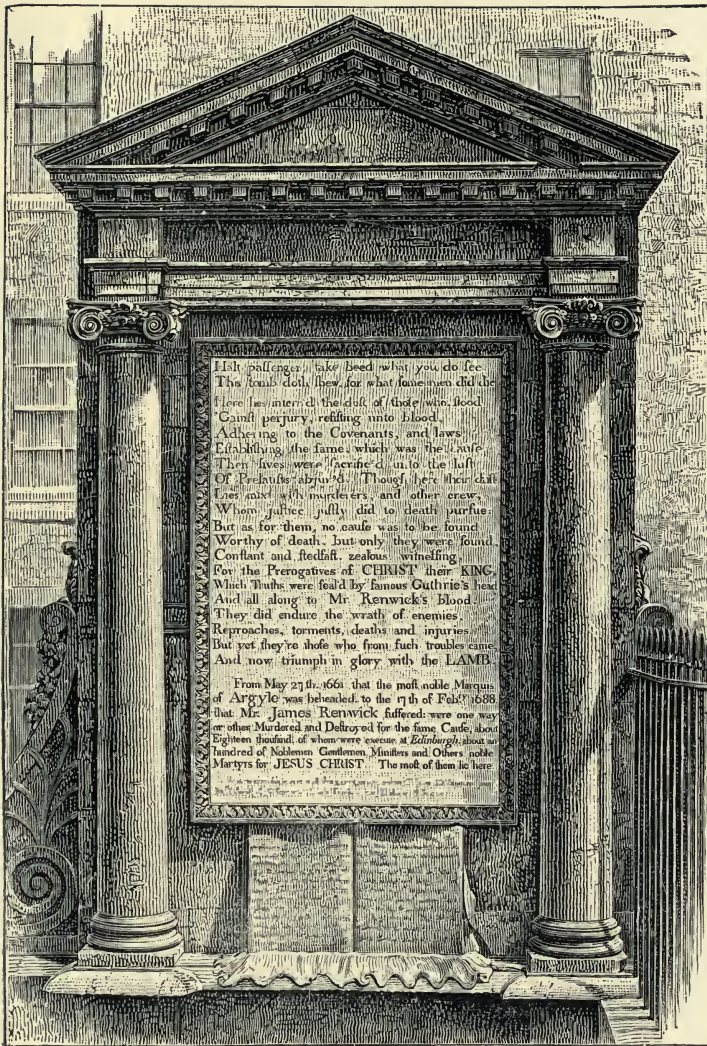 Halt paſſenger, take heed what you do ſee
This tomb doth ſhew, for what ſome men did die
Here lies interr'd the duſt of thoſe who ſtood
'Gainſt perjury, reſiſting unto blood
Adhering to the Covenants, and laws
Eſtabliſhing the ſame, which was the cauſe
Their lives were ſacrific'd unto the luſt
Of Prelatiſts abjur'd. Though here their duſt
Lies mixt with murderers, and other crew,
Whom juſtice juſtly did to death purſue:
But as for them, no cauſe was to be found
Worthy of death, but only they were found,
Conſtant and ſtedfaſt, zealous witneſſing,
For the Prerogatives of CHRIST their KING,
Which Truths were ſeal'd by famous Guthrie's head
And all along to Mr. Renwick's blood.
They did endure the wrath of enemies,
Reproaches, torments, deaths and injuries.
But yet they're thoſe who from ſuch troubles came,
And now triumph in glory with the LAMB.
From May 27th. 1661 that the moſt noble Marquis
of Argyle was beheaded, to the 17th of Feb.y 1688
that Mr. James Renwick ſuffered: were one way
or other Murdered and Deſtroyed for the ſame Cauſe, about
Eighteen thouſand, of whom were execute at Edinburgh, about an
hundred of Noblemen Gentlemen, Miniſters and Others noble
Martyrs for JESUS CHRIST. The moſt of them lie here